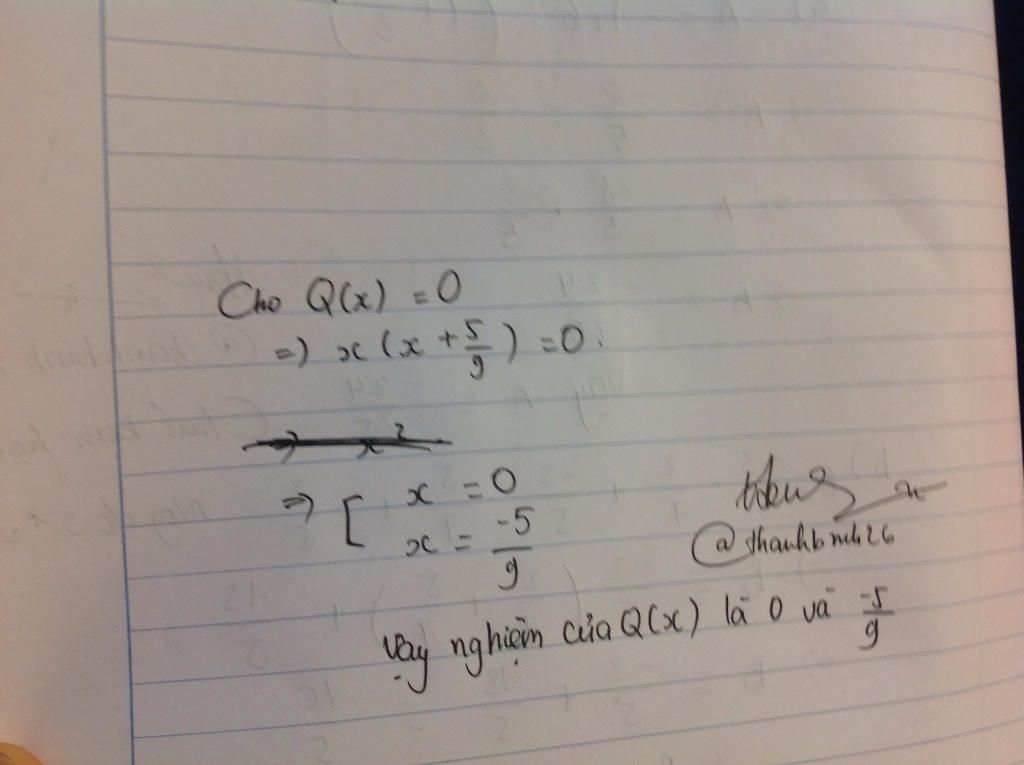 Cho Q(x) = 0
=) x(x + 5/9) = 0.
=> x²
=> [ x = 0
x = -5/9
@thanhbinh26
Vậy nghiệm của Q(x) là 0 và -5/9